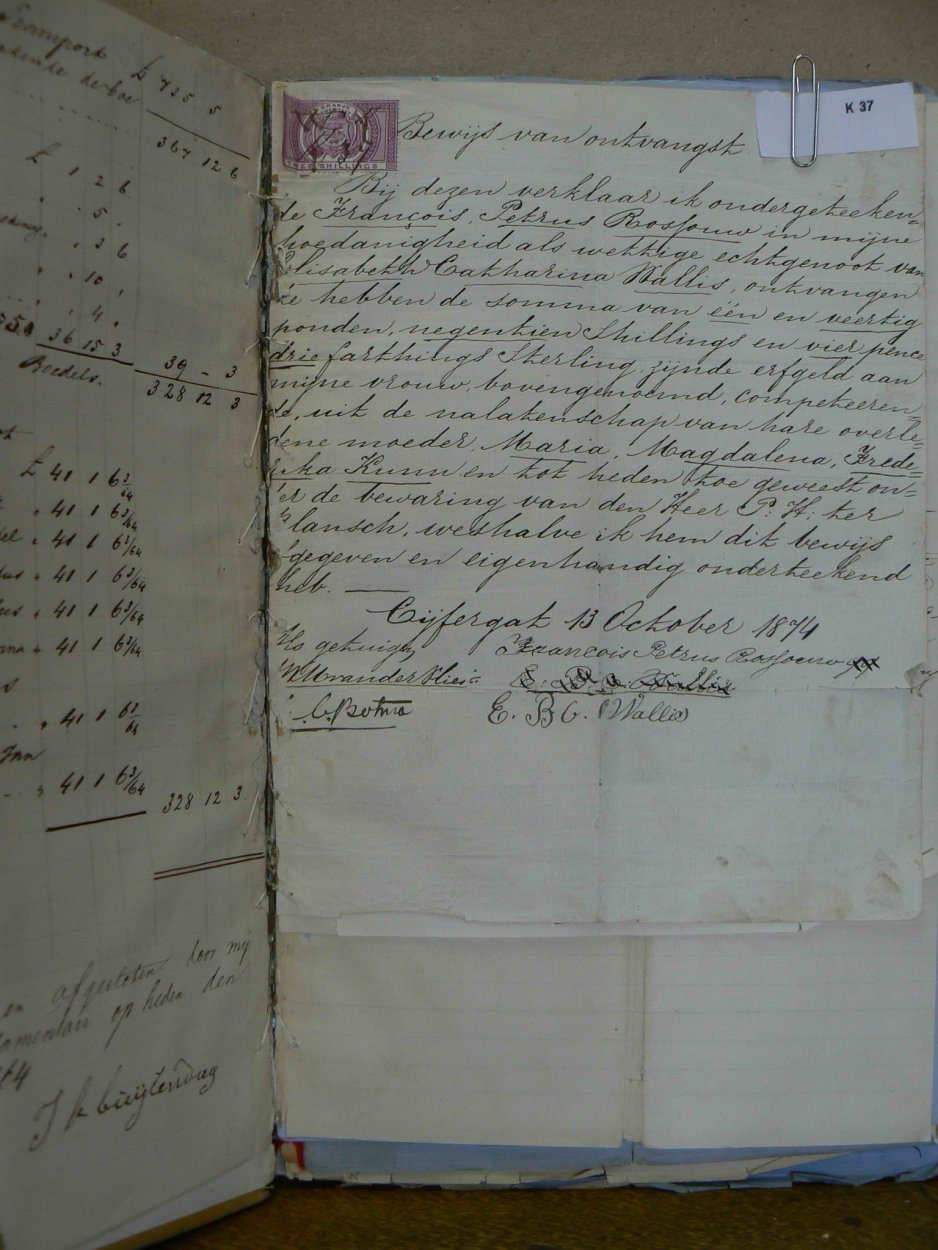 Transport £ 735 5
de boe
367 12 6
£ 1 2 6
" 5 "
" 3 6
" 10 "
" 4 "
36 15 3
39 - 3
328 12 3
Boedels.
£ 41 1 6 3/64
" 41 1 6 3/64
" 41 1 6 3/64
" 41 1 6 3/64
" 41 1 6 3/64
" 41 1 6 3/64
" 41 1 6 3/64
" 41 1 6 3/64
328 12 3
en afgesloten door mij
op heden den
64
K 37
TWEE SHILLINGS
Bewijs van ontvangst
Bij dezen verklaar ik ondergeteeken=
de François, Petrus Rossouw in mijne
hoedanigheid als wettige echtgenoot van
Elisabeth Catharina Wallis, ontvangen
te hebben de somma van één en veertig
ponden, negentien Shillings en vier pence
drie farthings Sterling, zijnde erfgeld aan
mijne vrouw, bovengenoemd, competeeren=
de, uit de nalatenschap van hare overle=
dene moeder, Maria, Magdalena, Frede=
rika Kunn en tot heden toe geweest on=
er de bewaring van den Heer P. H. ter
lansch, weshalve ik hem dit bewijs
gegeven en eigenhandig onderteekend
heb. —
Cijfergat 13 October 1874
Als getuigen
François Petrus Rossouw
C. Botma
E. B C. Wallis